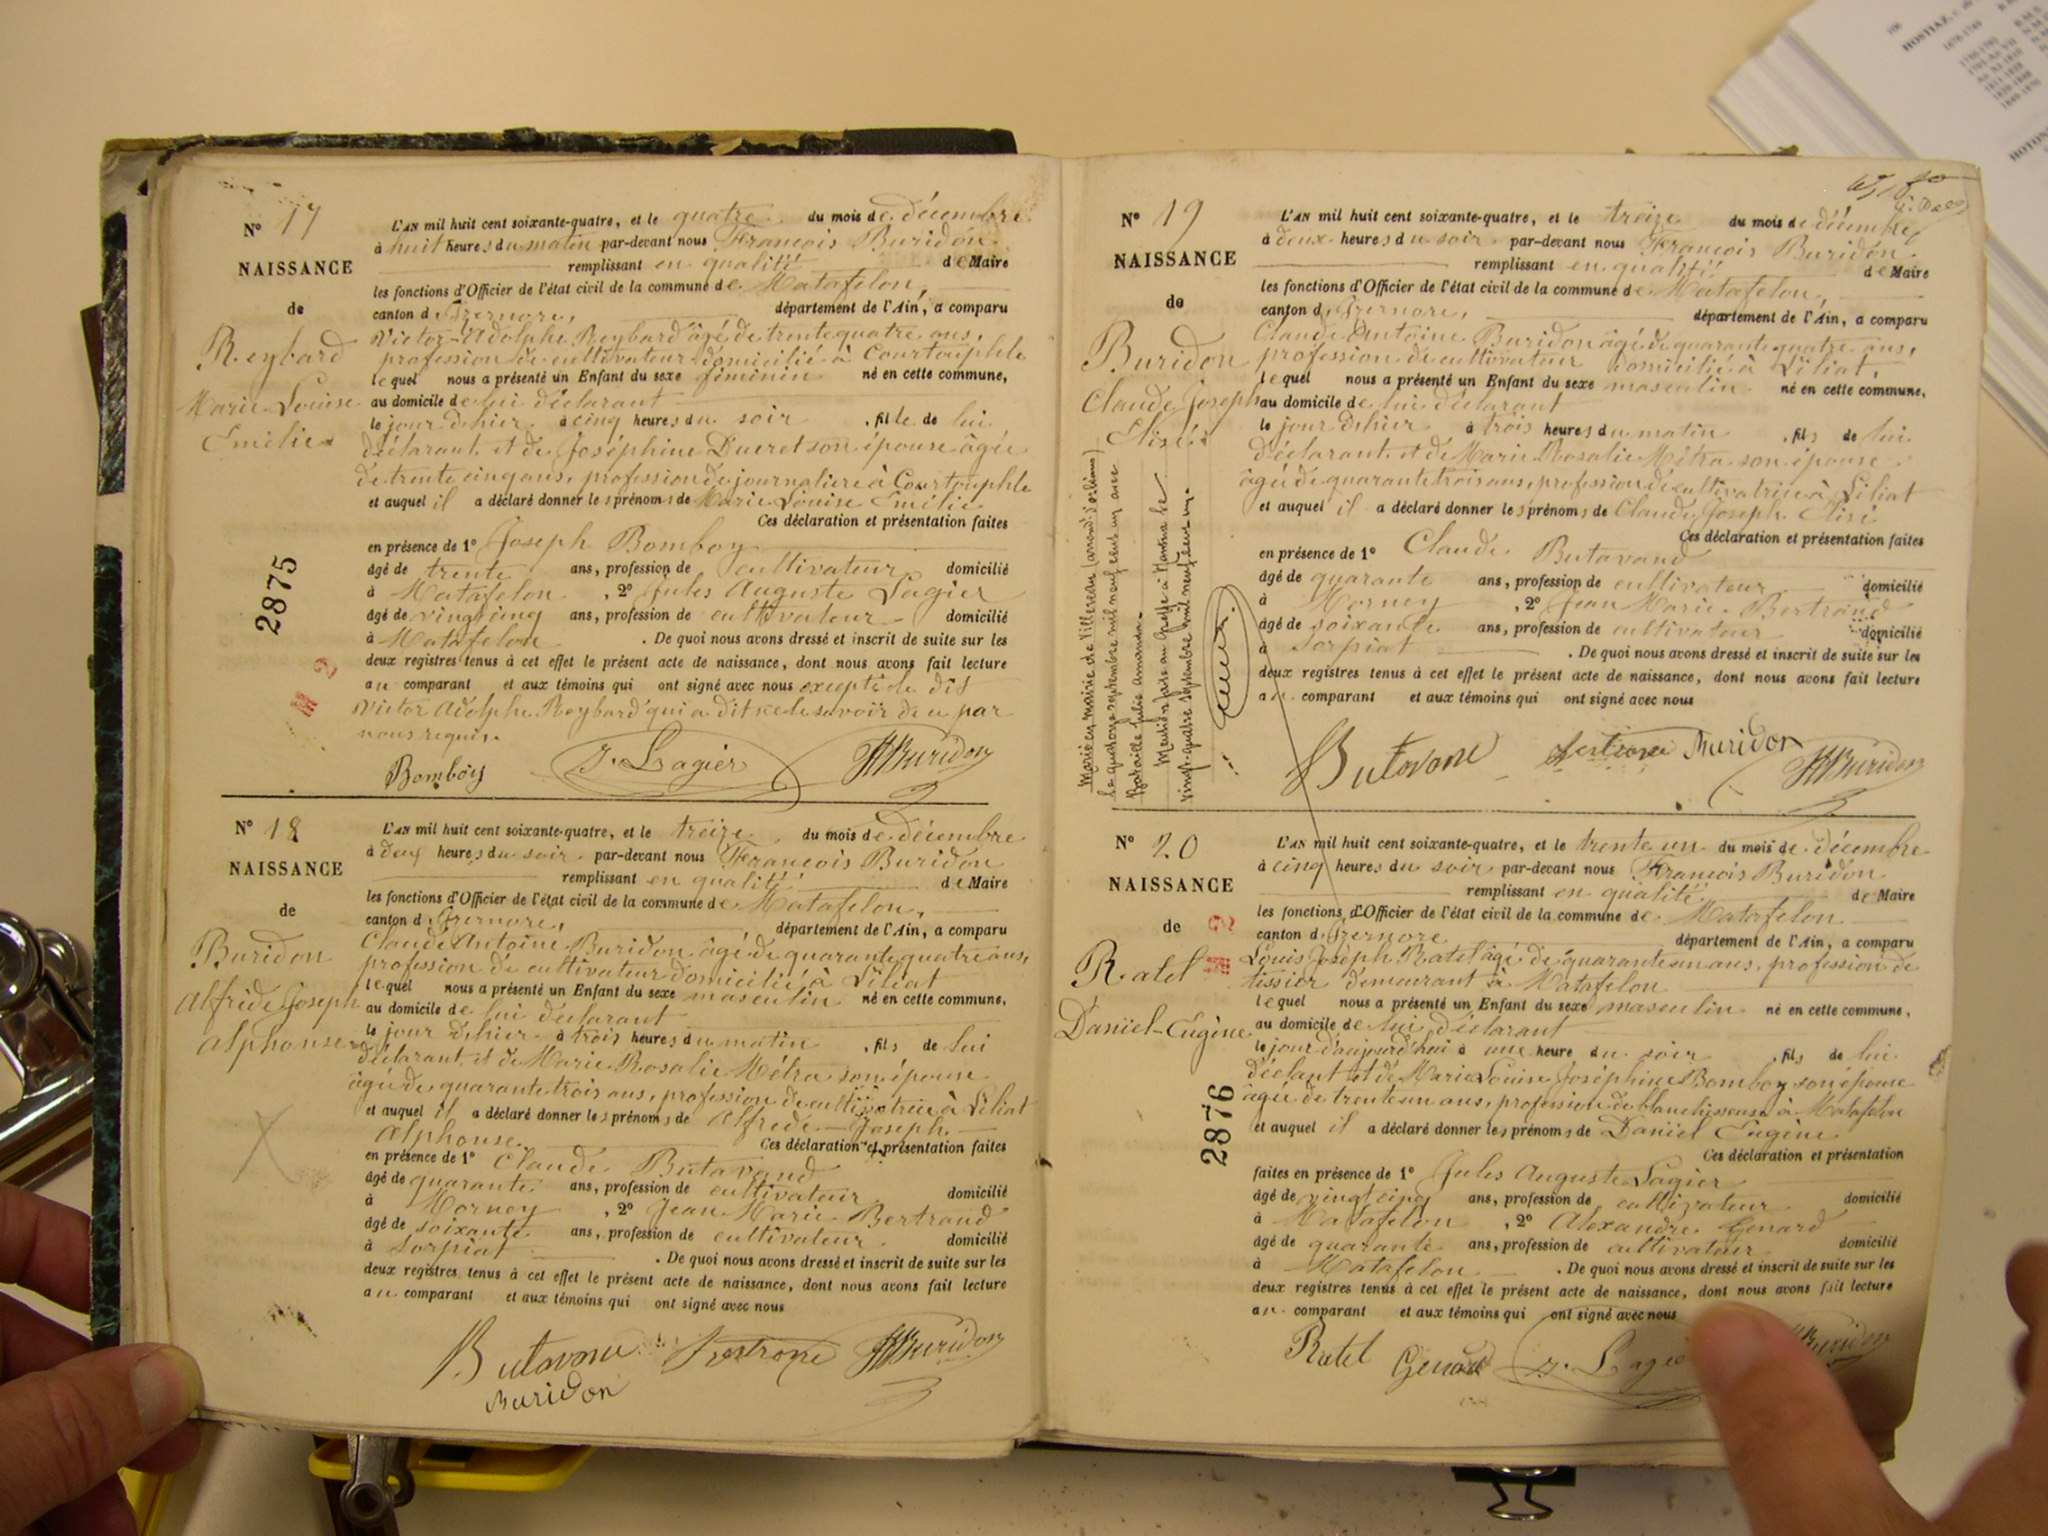 N° 17
NAISSANCE
de
Reybard
Marie Louise
Emélie
L'AN mil huit cent soixante-quatre, et le quatre du mois de décembre
à huit heures du matin par-devant nous François Buridon
remplissant en qualité de Maire
les fonctions d'Officier de l'état civil de la commune de Matafelon,
canton d'Izernore, département de l'Ain, a comparu
Victor-Adolphe Reybard âgé de trente quatre ans,
profession de cultivateur domicilié à Courtouphle
lequel nous a présenté un Enfant du sexe féminin né en cette commune,
au domicile de lui déclarant
le jour d'hier à cinq heures du soir , fille de lui
déclarant et de Joséphine Ducret son épouse âgée
de trente cinq ans, profession de journalière à Courtouphle
et auquel il a déclaré donner les prénoms de Marie Louise Emélie
Ces déclaration et présentation faites
en présence de 1° Joseph Bomboy
âgé de trente ans, profession de cultivateur domicilié
à Matafelon , 2° Jules Auguste Lagier
âgé de vingt cinq ans, profession de cultivateur domicilié
à Matafelon . De quoi nous avons dressé et inscrit de suite sur les
deux registres tenus à cet effet le présent acte de naissance, dont nous avons fait lecture
au comparant et aux témoins qui ont signé avec nous excepté le dit
Victor Adolphe Reybard qui a dit ne le savoir de ce par
nous requis.
Bomboy J. Lagier Buridon
2875
N° 18
NAISSANCE
de
Buridon
Alfride Joseph
Alphonse
L'AN mil huit cent soixante-quatre, et le treize du mois de décembre
à deux heures du soir par-devant nous François Buridon
remplissant en qualité de Maire
les fonctions d'Officier de l'état civil de la commune de Matafelon,
canton d'Izernore, département de l'Ain, a comparu
Claude Antoine Buridon âgé de quarante quatre ans,
profession de cultivateur domicilié à Liliat
lequel nous a présenté un Enfant du sexe masculin né en cette commune,
au domicile de lui déclarant
le jour d'hier à trois heures du matin , fils de lui
déclarant et de Marie Rosalie Métra son épouse
âgée de quarante trois ans, profession de cultivatrice à Liliat
et auquel il a déclaré donner les prénoms de Alfrede Joseph
Alphonse Ces déclaration et présentation faites
en présence de 1° Claude Butavand
âgé de quarante ans, profession de cultivateur domicilié
à Morney , 2° Jean Marie Bertrand
âgé de soixante ans, profession de cultivateur domicilié
à Sorpiat . De quoi nous avons dressé et inscrit de suite sur les
deux registres tenus à cet effet le présent acte de naissance, dont nous avons fait lecture
au comparant et aux témoins qui ont signé avec nous
Butavand Bertrand Buridon
Buridon
N° 19
NAISSANCE
de
Buridon
Claude Joseph
Elisé
L'AN mil huit cent soixante-quatre, et le treize du mois de décembre
à deux heures du soir par-devant nous François Buridon
remplissant en qualité de Maire
les fonctions d'Officier de l'état civil de la commune de Matafelon,
canton d'Izernore, département de l'Ain, a comparu
Claude Antoine Buridon âgé de quarante quatre ans,
profession de cultivateur domicilié à Liliat,
lequel nous a présenté un Enfant du sexe masculin né en cette commune,
au domicile de lui déclarant
le jour d'hier à trois heures du matin , fils de lui
déclarant et de Marie Rosalie Métra son épouse
âgée de quarante trois ans, profession de cultivatrice à Liliat
et auquel il a déclaré donner les prénoms de Claude Joseph Elisé
Ces déclaration et présentation faites
en présence de 1° Claude Butavand
âgé de quarante ans, profession de cultivateur domicilié
à Morney , 2° Jean Marie Bertrand
âgé de soixante ans, profession de cultivateur domicilié
à Sorpiat . De quoi nous avons dressé et inscrit de suite sur les
deux registres tenus à cet effet le présent acte de naissance, dont nous avons fait lecture
au comparant et aux témoins qui ont signé avec nous
Butavand Bertrand Buridon Buridon
Marié en mairie de Villereau (arrondt d'orléans)
le quatorze septembre mil neuf cent un avec
Bataille Julie Armanda.
Mention faite au Greffe à Nantua le
vingt-quatre septembre mil neuf cent un.
N° 20
NAISSANCE
de
Ratel
Daniel-Eugène
L'AN mil huit cent soixante-quatre, et le trente un du mois de décembre
à cinq heures du soir par-devant nous François Buridon
remplissant en qualité de Maire
les fonctions d'Officier de l'état civil de la commune de Matafelon
canton d'Izernore département de l'Ain, a comparu
Louis Joseph Ratel âgé de quarante un ans, profession de
tissier demeurant à Matafelon
lequel nous a présenté un Enfant du sexe masculin né en cette commune,
au domicile de lui déclarant
le jour d'aujourd'hui à une heure du soir , fils de lui
déclant et de Marie Louise Joséphine Bomboy son épouse
âgée de trente un ans, profession de blanchisseuse à Matafelon
et auquel il a déclaré donner les prénoms de Daniel Eugène
Ces déclaration et présentation
faites en présence de 1° Jules Auguste Lagier
âgé de vingt cinq ans, profession de cultivateur domicilié
à Matafelon , 2° Alexandre Genard
âgé de quarante ans, profession de cultivateur domicilié
à Matafelon . De quoi nous avons dressé et inscrit de suite sur les
deux registres tenus à cet effet le présent acte de naissance, dont nous avons fait lecture
au comparant et aux témoins qui ont signé avec nous
Ratel Genard J. Lagier Buridon
2876
HOSTIAZ,